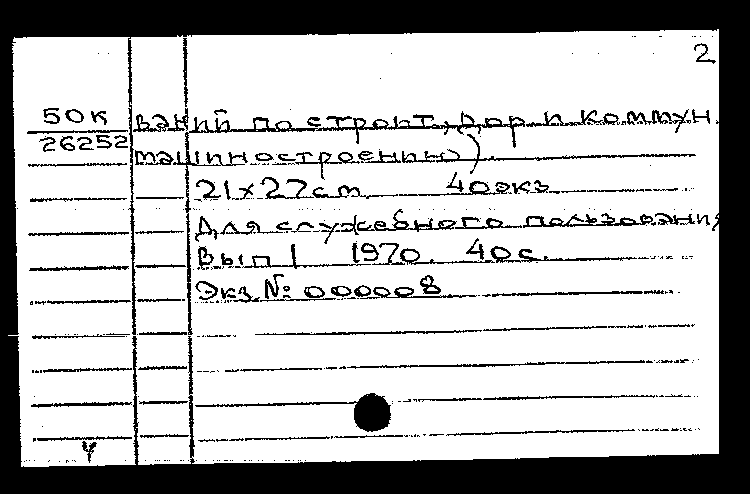 2
50к
26252
ваний по строит., дор и коммун.
машиностроению).
21×27см. 40экз
Для служебного пользования
Вып 1 1970. 40с.
Экз.№: 000008
У